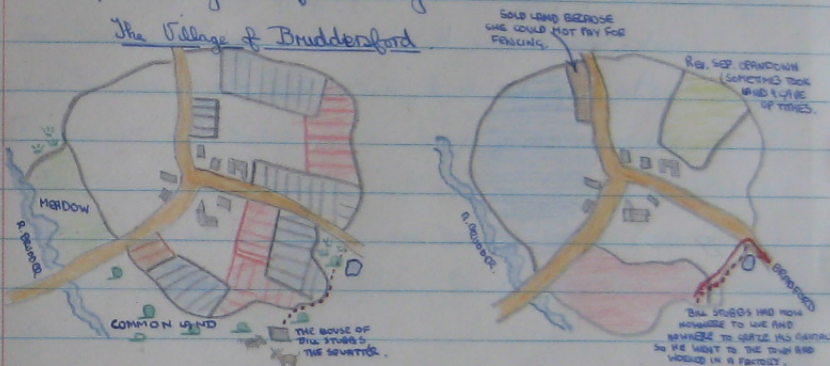 The Village of Bruddersford
MEADOW
R. BRUDDER.
COMMON LAND
THE HOUSE OF
BILL STUBBS
THE SQUATTER.
SOLD LAND BECAUSE
SHE COULD NOT PAY FOR
FENCING.
REV. SEP.
(SOMETIMES TOOK
LAND & GAVE
UP TITHES.
R. BRUDDER.
BRADFORD
BILL STUBBS HAD NOW
NOWHERE TO LIVE AND
NOWHERE TO GRAZE HIS
SO HE WENT TO THE TOWN AND
WORKED IN A FACTORY.